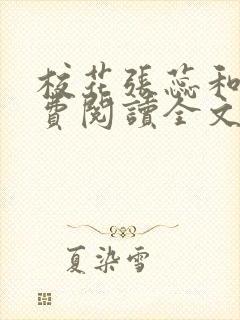 校花張蕊和
費閱讀全文
夏染雪